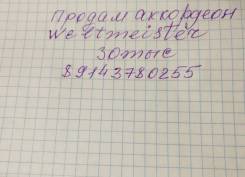 Продам аккордеон
Weltmeister
30тыс
89143780255